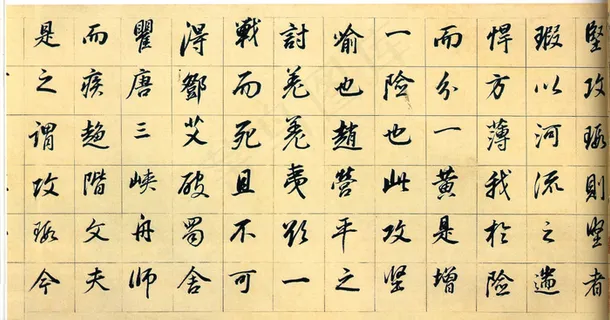 堅攻瑕則堅者
瑕以河流之遄
悍方薄我於險
而分一黃是增
一险也此攻坚
喻也趙營平之
討羌羌夷欲一
戰而死且不可
淂鄧艾破蜀舍
瞿唐三峽舟師
而疾趨階文夫
是之謂攻瑕今